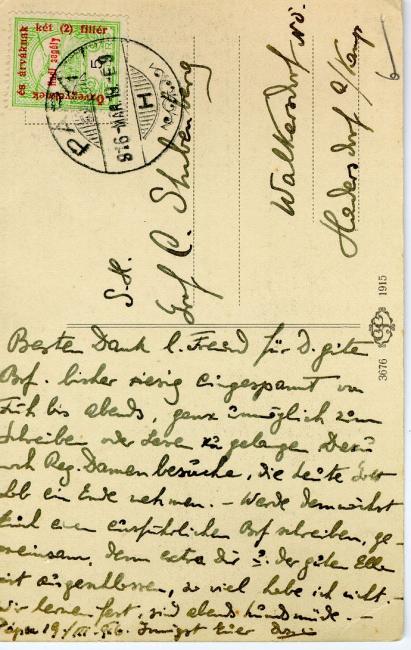 és árváknak két (2) fillér
Hadi segély
Özvegyeknek
PÁPA
916 MAR 19
S. H.
Graf C. Stubenberg
Walkersdorf
Hadersdorf a/Kamp
3676 1915
Besten Dank l. Freund für D. gute
Brf. bisher riesig eingespannt von
Früh bis abends, ganz unmöglich zum
Schreiben oder Lesen zu gelangen Dazu
noch Reg. Damenbesuche, die heute Gott
lob ein Ende nehmen. – Werde demnächst
Euch einen ausführlichen Brf schreiben, ge-
meinsam, denn extra dir u. der guten Elle
ist ausgeschlossen, so viel habe ich nicht. –
Wir lernen fest, sind abends hundsmüde. –
Pápa 19/III. 916. Innigst Euer